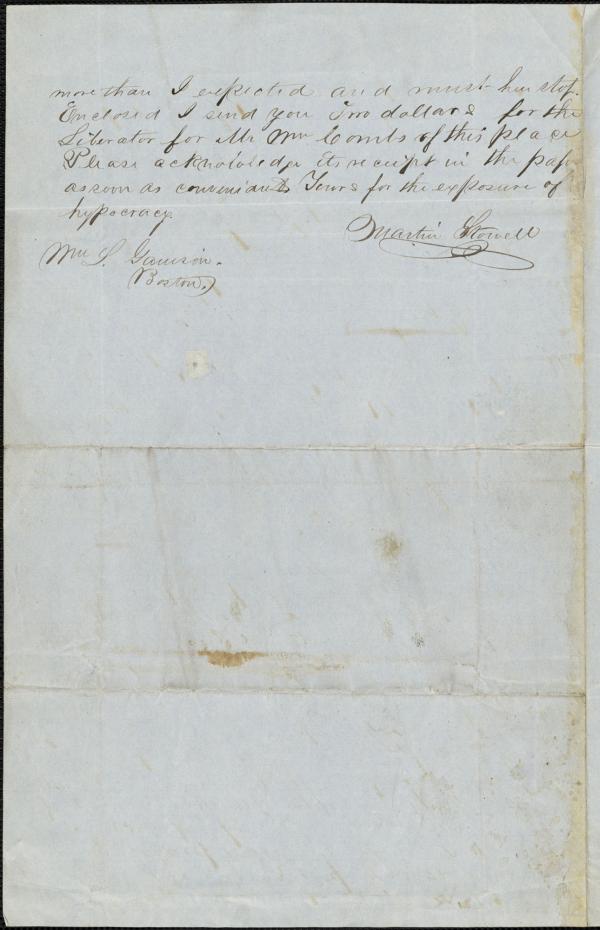 more than I expected and must here stop.
Enclosed I send you Two dollars for the
Liberator for Mr Wm Combs of this place
Please acknowledge its receipt in the paper
as soon as convenient Yours for the exposure of
hypocracy.
Martin Stowell
Wm L. Garrison.
Boston.